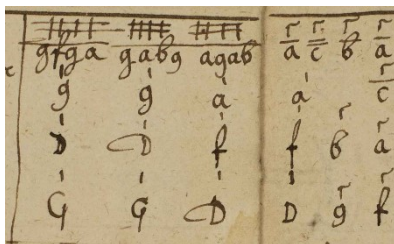 gfga gabg agab a c b a
g g a a c
D D f f b a
G G D D g f